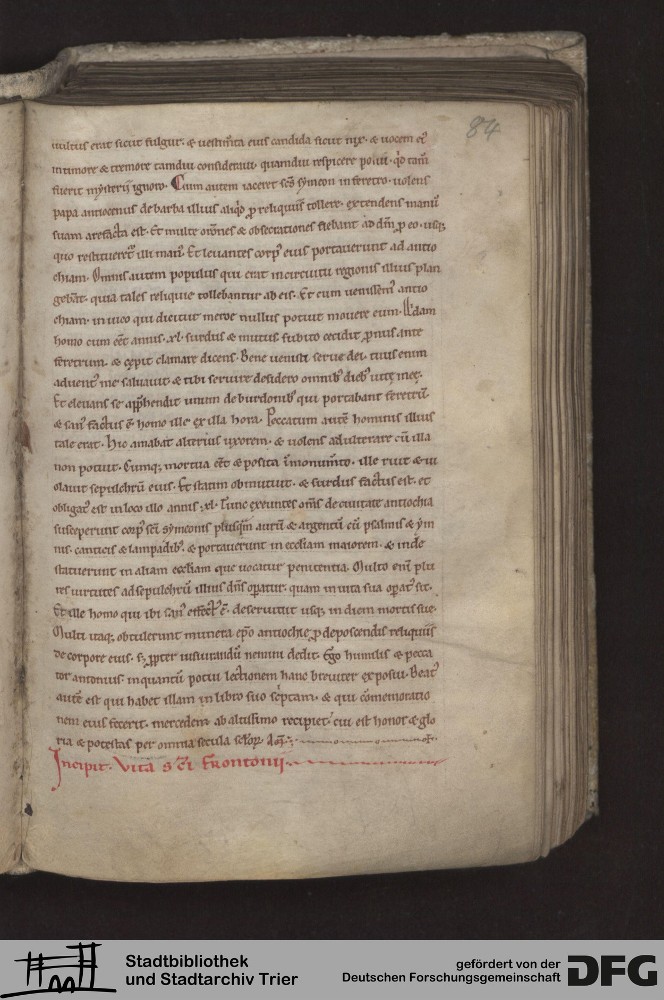 84
uultus erat sicut fulgur. & uestim̅ta eius candida sicut nix. & uocem ei᷒
in timore & tremore tamdiu consideraui. quamdiu respicere potui. q̊d tam̅
fuerit mysteriū ignoro. Cum autem iaceret scs̅ symeon in feretro. uolens
papa antiocenus de barba illius aliqd̕ ꝓ reliquiis tollere. extendens manū
suam arefacta est. Et multe orōnes & obsecrationes fiebant ad dn̅m ꝓ eo. usq;
quo restitueret᷒ illi man᷒. Et leuantes corp᷒ eius portauerunt ad antio
chiam. Omnis autem populus qui erat in circuitu regionis illius plan
gebat. quia tales reliquie tollebantur ab eis. Et cum uenissent᷒ antio
chiam. in uico qui dicitur meroe nullus potuit mouere eum. Quidam
homo cum eēt annis .xl. surdus & mutus subito cecidit pronus ante
feretrum. & cepit clamare dicens. Bene uenisti serue dei. tuus enim
aduent᷒ me saluauit. & tibi seruire desidero omnib᷒ dieb᷒ uite meę.
Et eleuans se app̅hendit unum de burdonib᷒ qui portabant feretrū.
& san᷒ factus ē homo ille ex illa hora. Peccatum aute̅ hominis illius
tale erat. Hic amabat alterius uxorem. & uolens adulterare cū illa
non potuit. Cumq; mortua eēt & posita ī monum̅to. ille ruit & ui
olauit sepulchrū eius. Et statim obmutuit. & surdus factus est. et
obligat᷒ est in loco illo annis .xl. Tunc exeuntes om̅s de ciuitate antiochia
susceperunt corp᷒ sc̅i symeonis plusqua̅ aurū & argentū cū psalmis & ym
nis. canticis & lampadib᷒. & portauerunt in eccliam maiorem. & inde
statuerunt in aliam eccliam que uocatur penitentia. Multo eni̅ plu
res uirtutes ad sepulchrū illius dn̅s operatur. quam in uita sua operat᷒ sit.
Et ille homo qui ibi san᷒ effect᷒ ē. deseruiuit usq; in diem mortis sue.
Multi itaq; obtulerunt munera ep̅o antiochie ꝓ deposcendis reliquiis
de corpore eius. s; ꝓpter iusiurandū nemini dedit. Ego humilis & pecca
tor antonius in quantū potui lectionem hanc breuiter exposui. Beat᷒
aute̅ est qui habet illam in libro suo sc̕ptam. & qui cōmemoratio
nem eius fecerit. mercedem ab altissimo recipiet. cui est honor & glo
ria & potestas per omnia secula sclor̅. am̅.
Incipit. Vita sc̅i frontonii
Stadtbibliothek
und Stadtarchiv Trier
gefördert von der
Deutschen Forschungsgemeinschaft
DFG